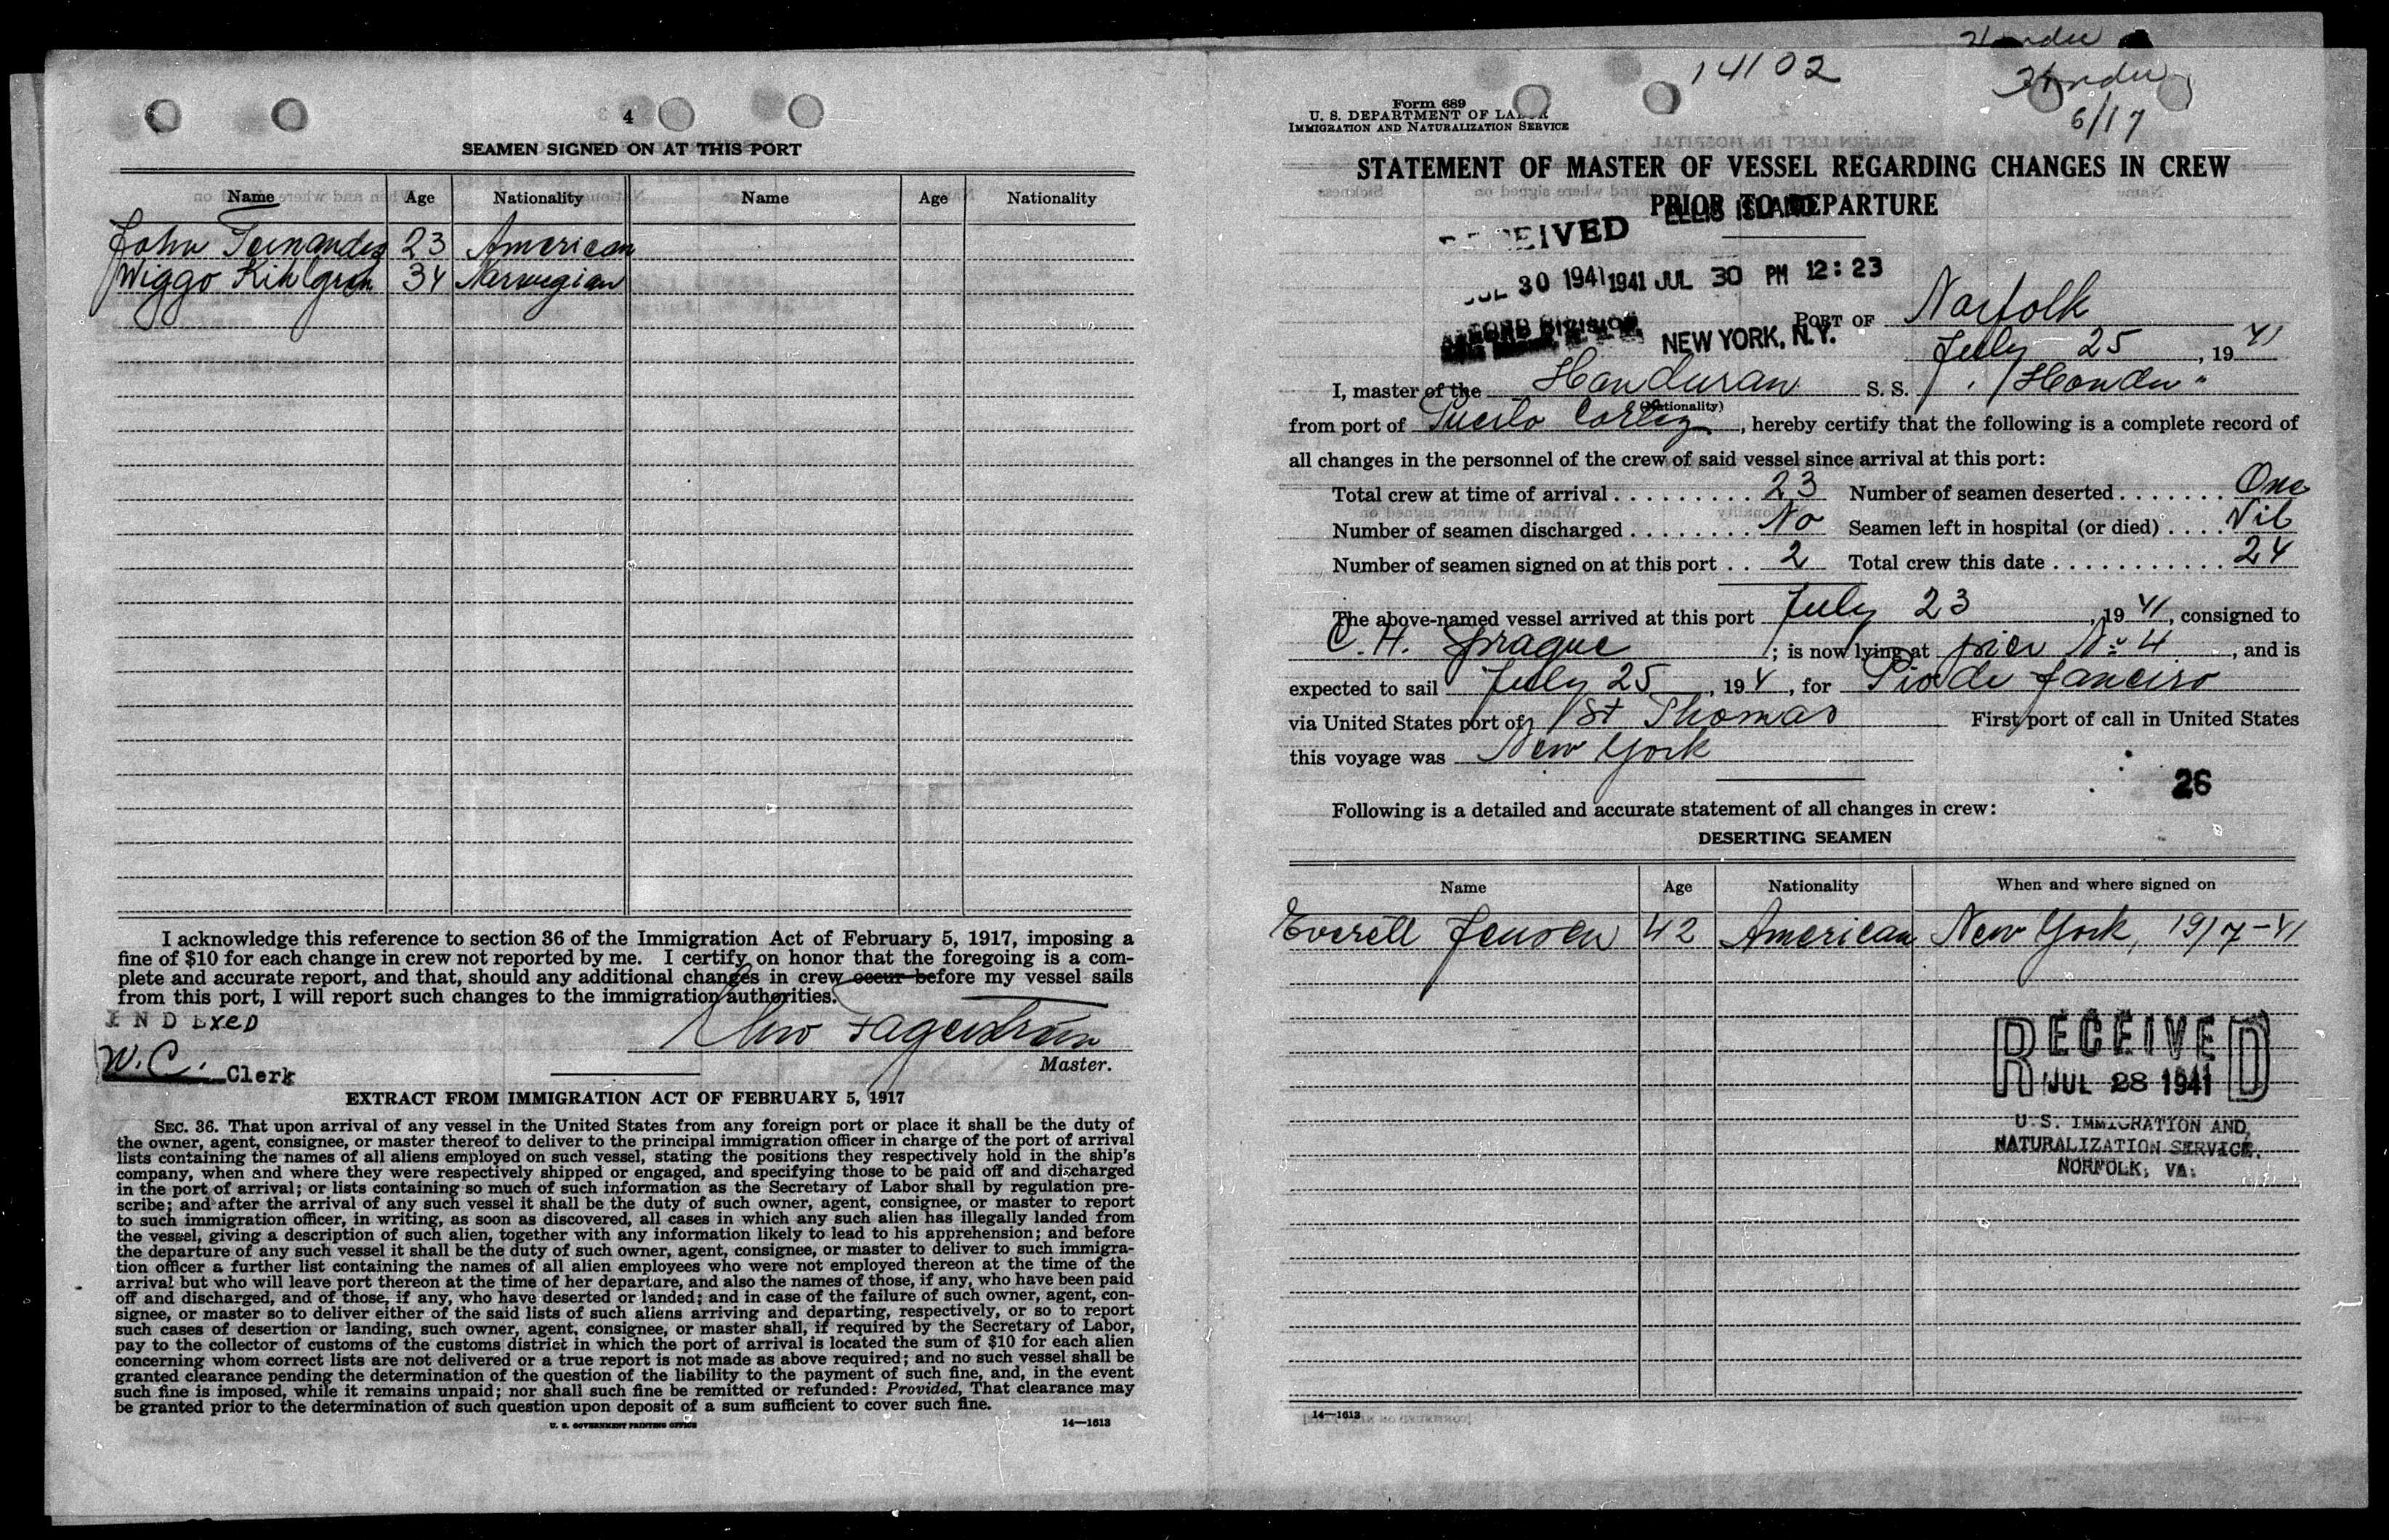 4
SEAMEN SIGNED ON AT THIS PORT
Name Age Nationality Name Age Nationality
John Fernandes 23 American
Wiggo Kihlgren 34 Norwegian
I acknowledge this reference to section 36 of the Immigration Act of February 5, 1917, imposing a
fine of $10 for each change in crew not reported by me. I certify on honor that the foregoing is a com-
plete and accurate report, and that, should any additional changes in crew occur before my vessel sails
from this port, I will report such changes to the immigration authorities.
INDEXED
Fagerström
W.C. Clerk
Master.
EXTRACT FROM IMMIGRATION ACT OF FEBRUARY 5, 1917
SEC. 36. That upon arrival of any vessel in the United States from any foreign port or place it shall be the duty of
the owner, agent, consignee, or master thereof to deliver to the principal immigration officer in charge of the port of arrival
lists containing the names of all aliens employed on such vessel, stating the positions they respectively hold in the ship's
company, when and where they were respectively shipped or engaged, and specifying those to be paid off and discharged
in the port of arrival; or lists containing so much of such information as the Secretary of Labor shall by regulation pre-
scribe; and after the arrival of any such vessel it shall be the duty of such owner, agent, consignee, or master to report
to such immigration officer, in writing, as soon as discovered, all cases in which any such alien has illegally landed from
the vessel, giving a description of such alien, together with any information likely to lead to his apprehension; and before
the departure of any such vessel it shall be the duty of such owner, agent, consignee, or master to deliver to such immigra-
tion officer a further list containing the names of all alien employees who were not employed thereon at the time of the
arrival but who will leave port thereon at the time of her departure, and also the names of those, if any, who have been paid
off and discharged, and of those, if any, who have deserted or landed; and in case of the failure of such owner, agent, con-
signee, or master so to deliver either of the said lists of such aliens arriving and departing, respectively, or so to report
such cases of desertion or landing, such owner, agent, consignee, or master shall, if required by the Secretary of Labor,
pay to the collector of customs of the customs district in which the port of arrival is located the sum of $10 for each alien
concerning whom correct lists are not delivered or a true report is not made as above required; and no such vessel shall be
granted clearance pending the determination of the question of the liability to the payment of such fine, and, in the event
such fine is imposed, while it remains unpaid; nor shall such fine be remitted or refunded: Provided, That clearance may
be granted prior to the determination of such question upon deposit of a sum sufficient to cover such fine.
U. S. GOVERNMENT PRINTING OFFICE 14—1613
Hondu
14102
Hondu
6/17
Form 689
U. S. DEPARTMENT OF LABOR
IMMIGRATION AND NATURALIZATION SERVICE
STATEMENT OF MASTER OF VESSEL REGARDING CHANGES IN CREW
PRIOR TO DEPARTURE
ELLIS ISLAND
RECEIVED
JUL 30 1941
1941 JUL 30 PM 12:23
RECORD DIVISION
NEW YORK, N.Y.
PORT OF Norfolk
July 25, 1941
I, master of the Honduran S. S. "Hondu"
(Nationality)
from port of Puerto Cortez, hereby certify that the following is a complete record of
all changes in the personnel of the crew of said vessel since arrival at this port:
Total crew at time of arrival 23 Number of seamen deserted One
Number of seamen discharged No Seamen left in hospital (or died) Nil
Number of seamen signed on at this port 2 Total crew this date 24
The above-named vessel arrived at this port July 23, 1941, consigned to
C. H. Sprague; is now lying at pier No 4, and is
expected to sail July 25, 194, for Rio de Janeiro
via United States port of St Thomas First port of call in United States
this voyage was New York
26
Following is a detailed and accurate statement of all changes in crew:
DESERTING SEAMEN
Name Age Nationality When and where signed on
Everell Jensen 42 American New York, 19/7-41
RECEIVED
JUL 28 1941
U.S. IMMIGRATION AND
NATURALIZATION SERVICE.
NORFOLK, VA.
14—1613